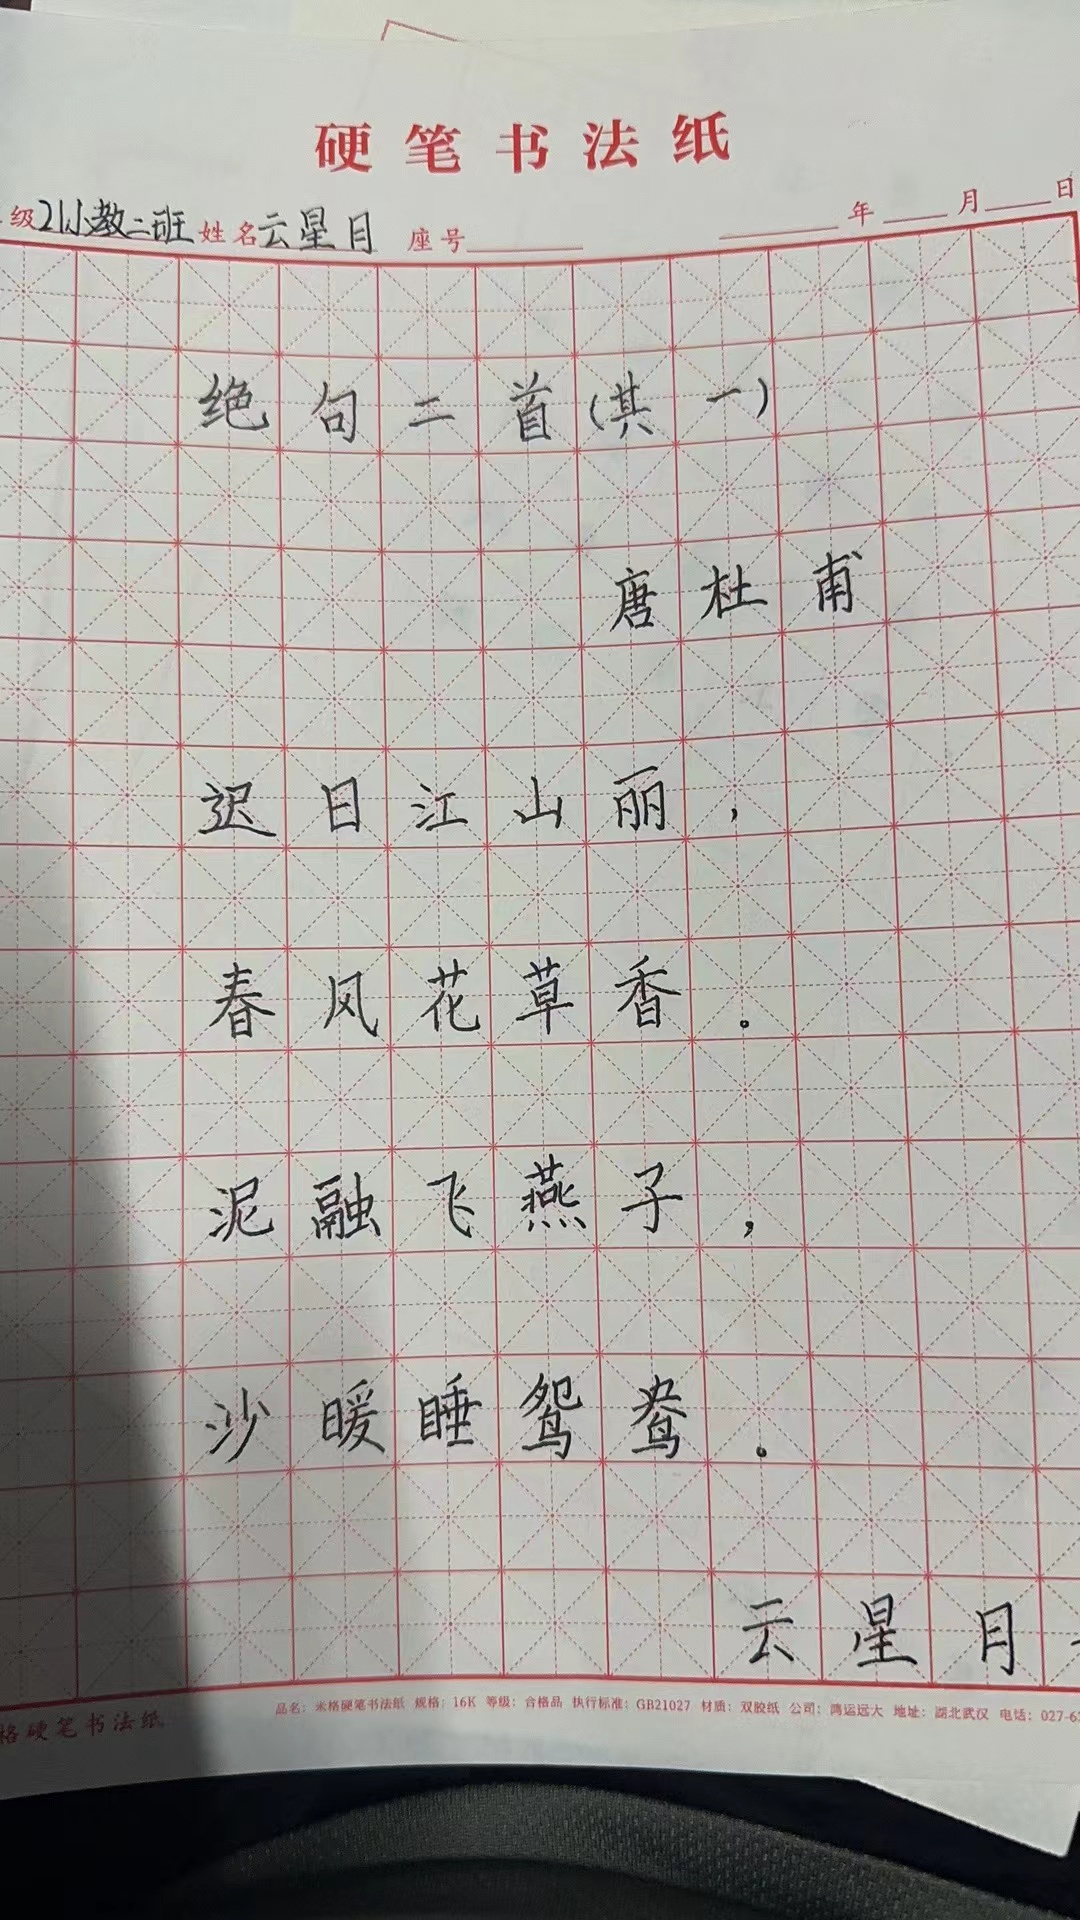 硬笔书法纸
级21小教二班 姓名云星月 座号 年 月 日
绝句二首(其一)
唐杜甫
迟日江山丽,
春风花草香。
泥融飞燕子,
沙暖睡鸳鸯。
云星月
格硬笔书法纸
品名：米格硬笔书法纸 规格：16K 等级：合格品 执行标准：GB21027 材质：双胶纸 公司：鸿运远大 地址：湖北武汉 电话：027-6